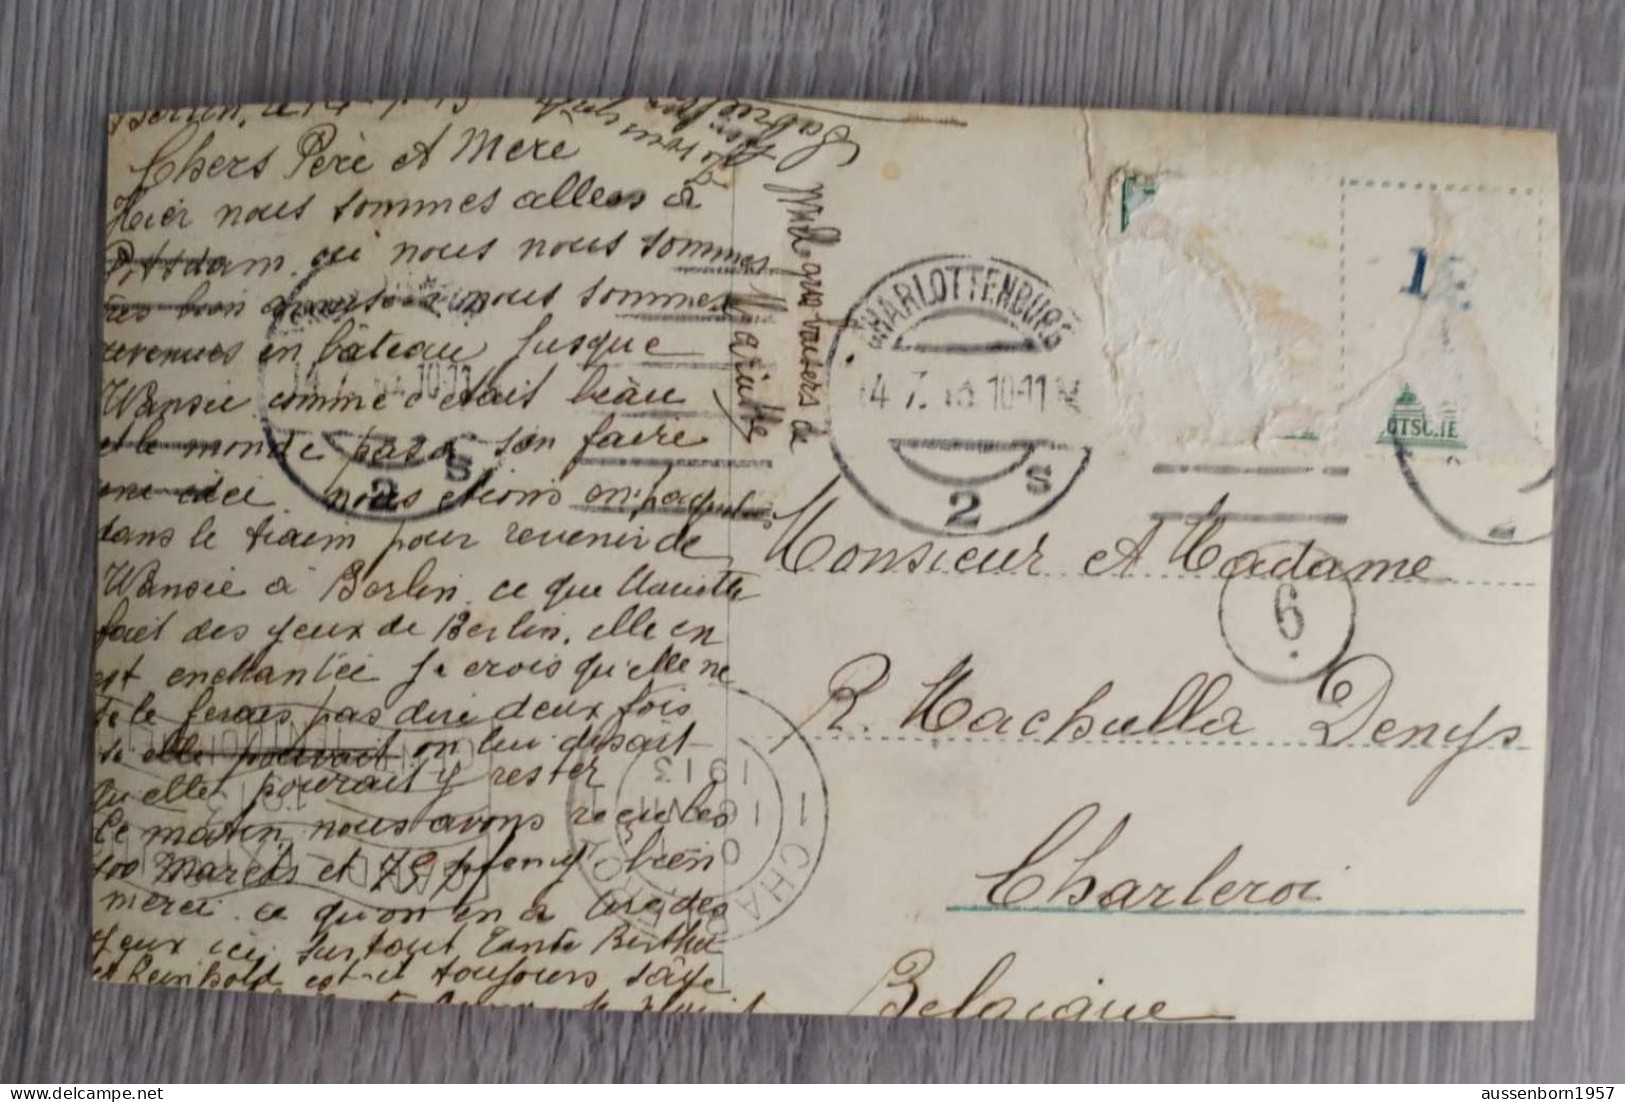 Berlin, le 14
Chers Père et Mère
Hier nous sommes allees à
Pottsdam ou nous nous sommes
très bien amusée nous sommes
revenues en bâteau jusque
Wansie comme c'etait beau
et le monde pas a s'en faire
une idée nous etions en paquetés
dans le train pour revenir de
Wansie à Berlin. ce que Mariette
fait des yeux de Berlin, elle en
est enchantée je crois qu'elle ne
se le ferais pas dire deux fois
si elle pouvait on lui disait
qu'elle pourait y rester
Ce matin, nous avons recu les
100 Marcks et 75 pfenig bien
merci. ce qu'on en a tire des
yeux ici, surtout Tante Bertha
et Reinhold est-il toujours sage
Mariette
Mille gros baisers de
CHARLOTTENBURG
14.7.13.10-11 V
2 s
14.7.13.10-11
2 s
DTSC.TE
2
Monsieur et Madame
6
R. Machulla Denys
Charleroi
Belgique
1 CHARLEROI 1
1913
aussenborn1957